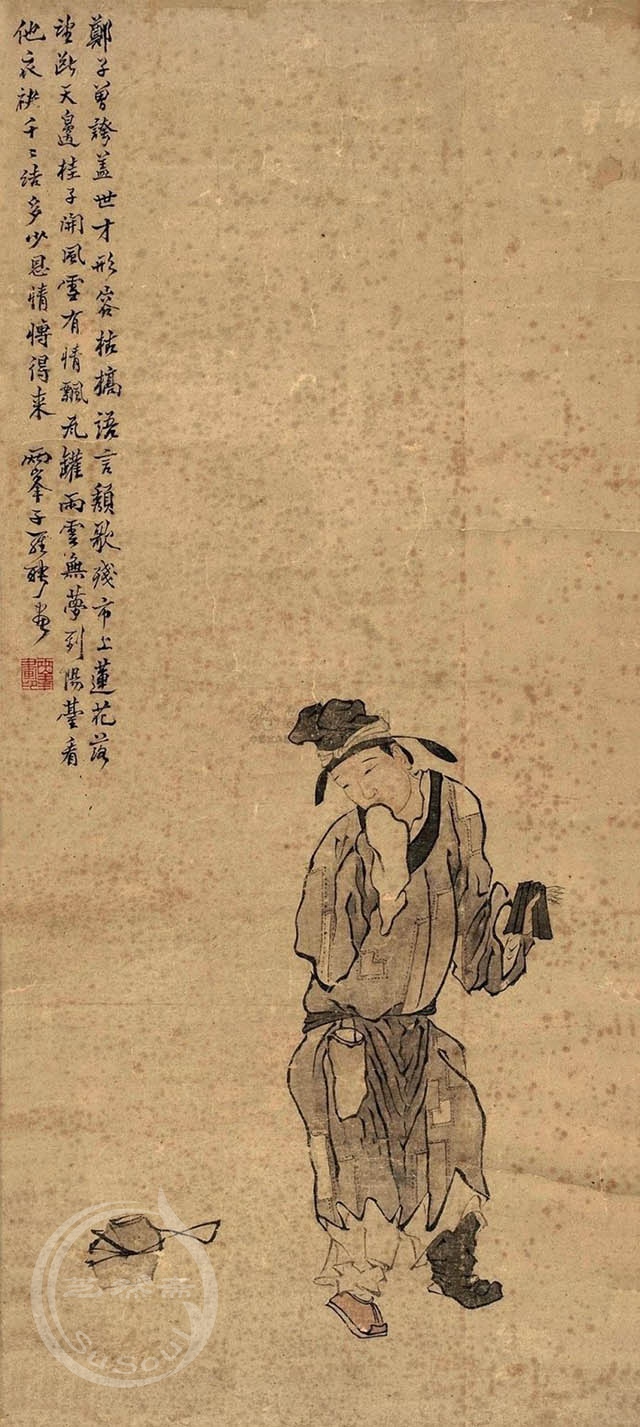 鄭子曾誇蓋世才形容枯槁語言頹歌殘市上蓮花落
望斷天邊桂子開風雪有情飄瓦罐雨雲無夢到陽臺看
他衣袂千〻結多少恩情博得来　兩峯子羅聘畫
SuSoul